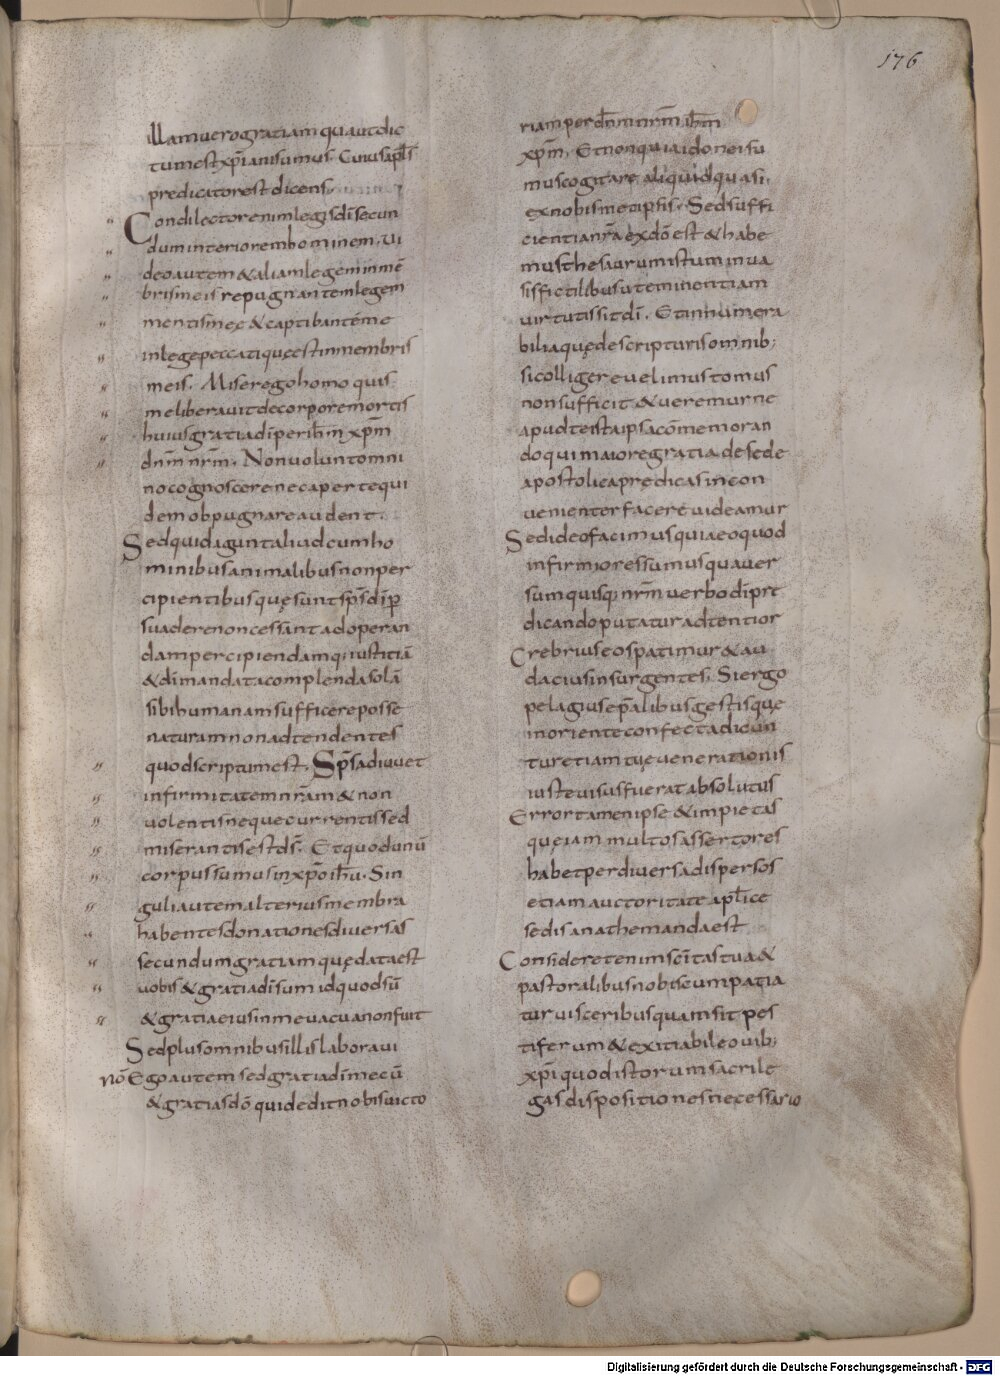 176
illam uero gratiam qua ut dic
tum est xp̄iani sumus. Cuius apl̄s
predicator est dicens.
Condilector enim legis dī secun
dum interiorem hominem. Ui
deo autem & aliam legem in mē
bris meis repugnantem legem
mentis meę & captibantem me
in lege peccati quę est in membris
meis. Miser ego homo quis
me liberauit de corpore mortis
huius gratia dī per ih̄m xp̄m
dn̄m nr̄m. Nonvoluntomni
no cognoscere nec aperte qui
dem obpugnare audent.
Sed quid agunt aliud cum ho
minibus animalibus non per
cipientibus quę sunt sp̄s dī ꝑ
suadere non cessant ad operan
dam percipiendamq; iustitiā
& dī mandata complenda solā
sibi humanam sufficere posse
naturam non adtendentes
quod scriptum est. Sp̄s adiuuet
infirmitatem nr̄am & non
uolentis neque currentis sed
miserantis est dī. Et quod unū
corpus sumus in xp̄o ih̄u. Sin
guli autem alterius membra
habentes donationes diuersas
secundum gratiam quę data est
uobis & gratia dī sum id quod sū
& gratia eius in me uacua non fuit
Sed plus omnibus illis laboraui
nō Ego autem sed gratia dī mecū
& gratias dō qui dedit nobis uicto
riam per dn̄m nr̄m ih̄m
xp̄m. Et non quia idonei su
mus cogitare aliquid quasi
ex nobismetipsis. Sed suffi
cientia nr̄a ex dō est & habe
mus thesaurum istum in ua
sis fictilibus ut eminentiam
uirtutis sit dī. Et innumera
bilia quę de scripturis omnib;
si colligere uelimus tomus
non sufficit & ueremur ne
apud te ista ipsa cōmemoran
do qui maiore gratia de sede
apostolica predicas incon
uenienter facere uideamur
Sed ideo facimus quia eo quod
infirmiores sumus quauer
sum quisq; nr̄m uerbo dī prę
dicando putatur adtentior
Crebrius eos patimur & au
dacius insurgentes. Si ergo
pelagius ep̄alibus gestis quę
in oriente confecta dicun
tur etiam tuę uenerationis
iuste uisus fuerat absolutus
Error tamen ipse & impietas
quę iam multos assertores
habet per diuersa dispersos
etiam auctoritate apl̄ice
sedis anathemanda est
Consideret enim sc̄itas tua &
pastoralibus nobis compatia
tur uisceribus quam sit pes
tiferum & exitiabile ouib;
xp̄i quod istorum sacrile
gas dispositiones necessario
Digitalisierung gefördert durch die Deutsche Forschungsgemeinschaft - DFG